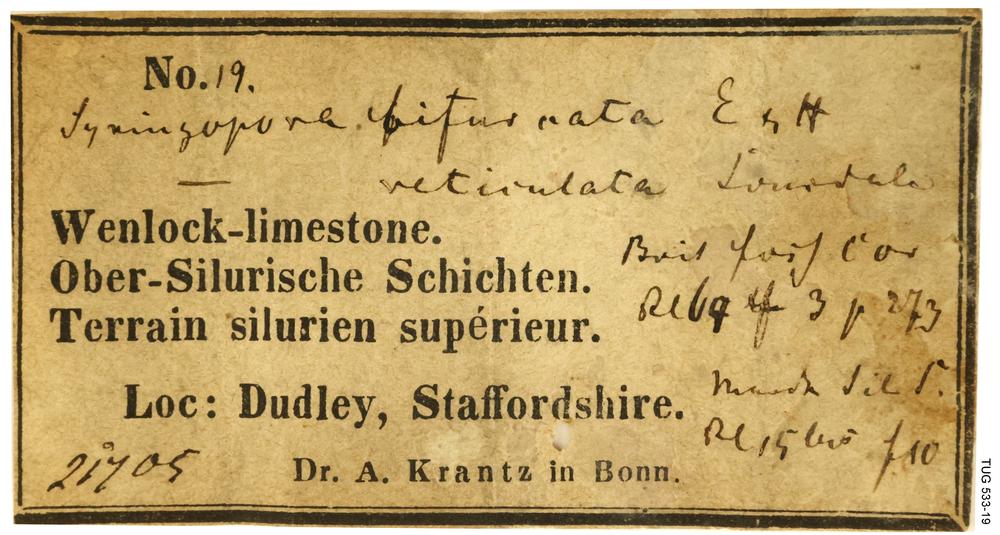 No. 19.
Syringopora bifurcata E & H
— reticulata Lonsdale
Wenlock-limestone.
Ober-Silurische Schichten.
Terrain silurien supérieur.
Brit foss Cor
Pl 64 f 3 p 273
Loc: Dudley, Staffordshire.
Murch Sil S.
Pl 15 bis f 10
Dr. A. Krantz in Bonn.
TUG 533-19